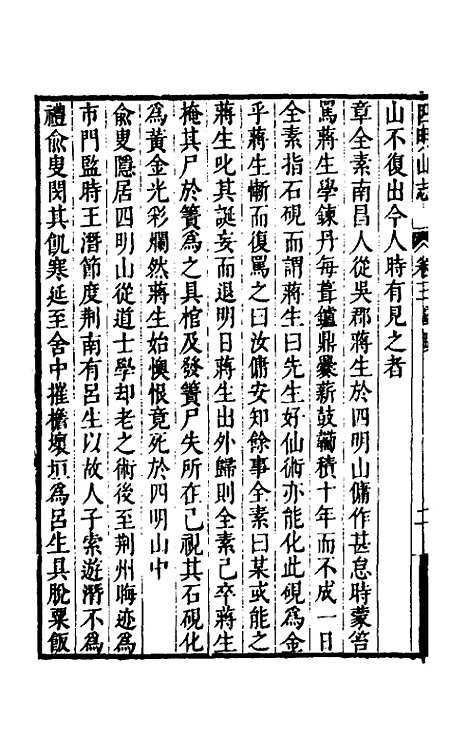 四明山志 卷三
山不復出今人時有見之者
章全素南昌人從吳郡蔣生於四明山傭作甚怠時蒙笞
罵蔣生學鍊丹每葺鑪鼎爨薪鼓鞴積十年而不成一日
全素指石硯而謂蔣生曰先生好仙術亦能化此硯爲金
乎蔣生慚而復罵之曰汝傭安知餘事全素曰某或能之
蔣生叱其誕妄而退明日蔣生出外歸則全素已卒蔣生
掩其尸於簣爲之具棺及發簣尸失所在已視其石硯化
爲黃金光彩爛然蔣生始懊恨竟死於四明山中
俞叟隱居四明山從道士學却老之術後至荆州晦迹爲
市門監時王潛節度荆南有呂生以故人子索遊潛不爲
禮俞叟閔其飢寒延至舍中摧檐壞垣爲呂生具脫粟飯